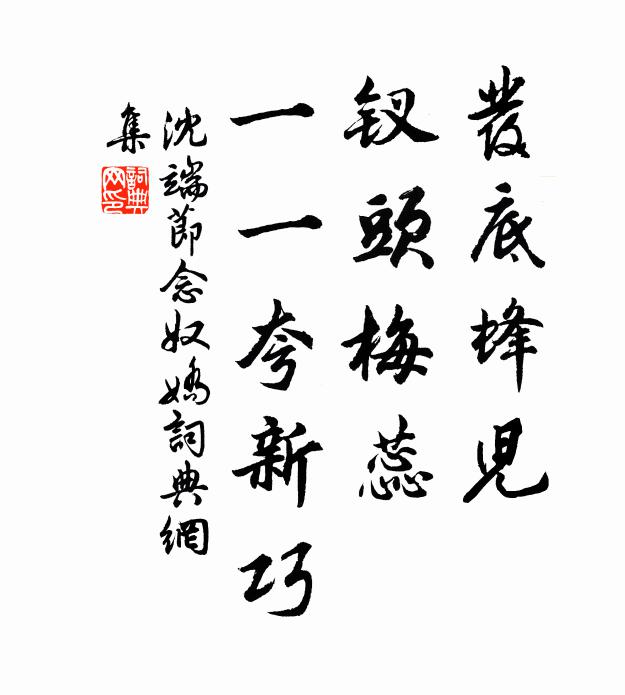 發底蜂児
釵頭梅蕊
一一夸新巧
沈端節念奴嬌詞典網
集
詞典
网印